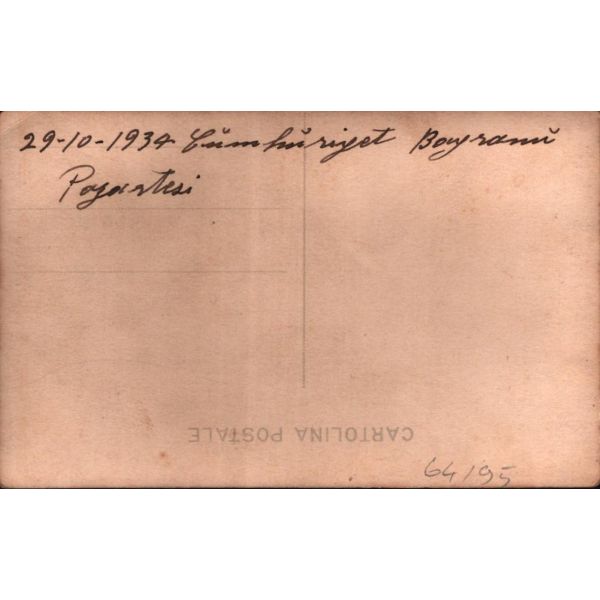 29-10-1934 Cümhüriyet Bayramü
Pazartesi
CARTOLINA POSTALE
64195